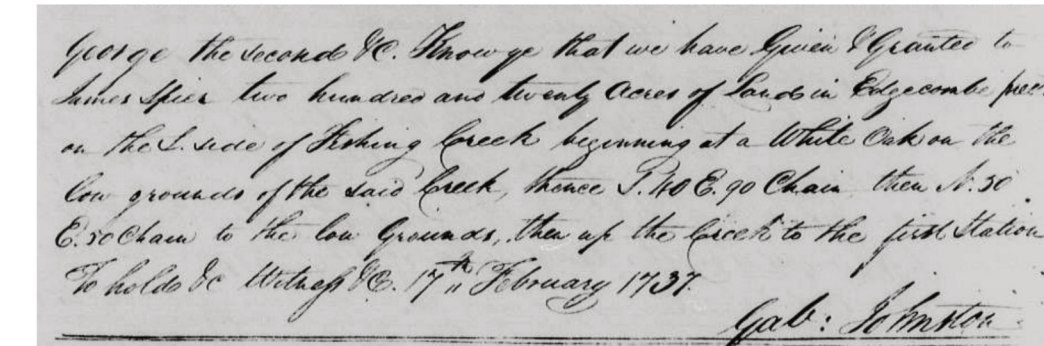 George the second &C. Know ye that we have Given & Granted to
James Spier two hundred and twenty Acres of Land in Edgecombe prec
on the S. side of Fishing Creek beginning at a White Oak on the
low grounds of the said Creek, thence S. 40 E. 90 Chain then N. 50
E. 50 Chain to the low Grounds, then up the Creek to the first Station
To hold &c Witness &C. 17th February 1737.
Gab: Johnston